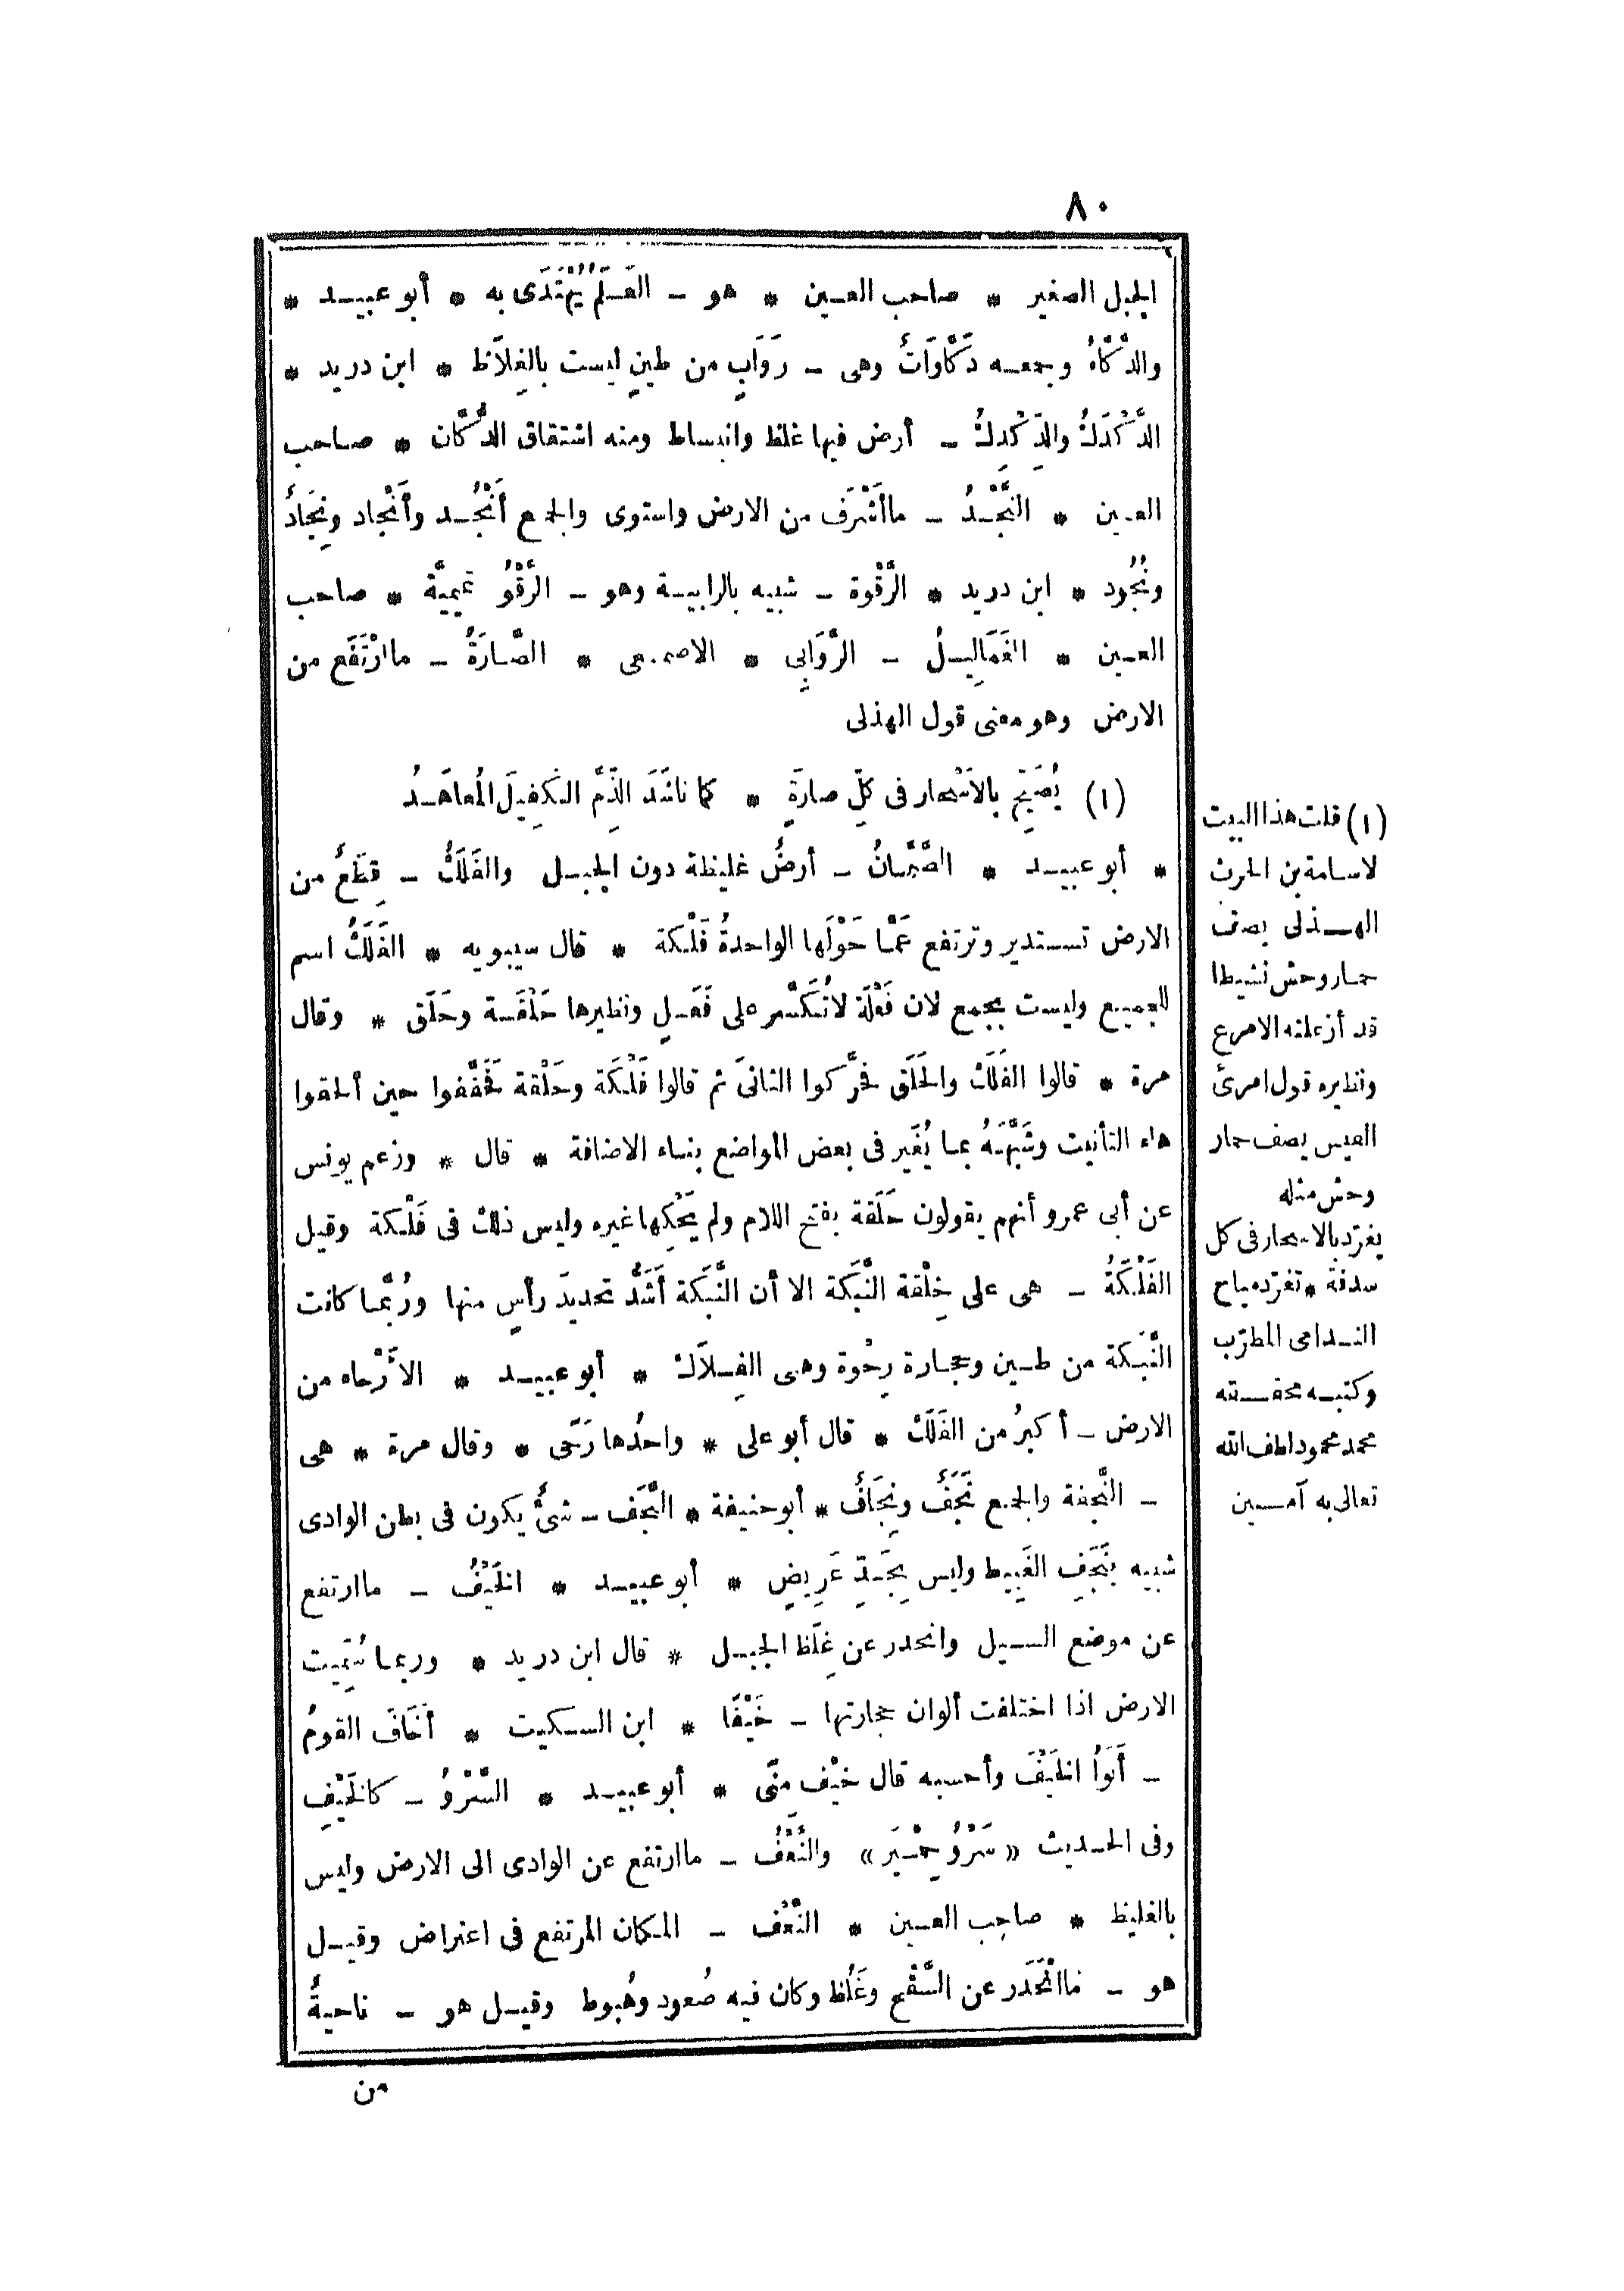 ٨٠
الجبل الصغير * صاحب العين * هو - العَلَمُ يُهْتَدَى به * أبو عبيد *
والدَّكَّاءُ وجمعه دَكَّاوَاتٌ وهى - رَوَابٍ من طينٍ ليست بالغِلاَظ * ابن دريد *
الدَّكْدَكُ والدِّكْدِكُ - أرض فيها غلظ وانبساط ومنه اشتقاق الدُّكَّان * صاحب
العين * النَّجْدُ - ماأشْرَف من الارض واستوى والجمع أَنْجُد وأَنْجاد ونِجَادٌ
ونُجُود * ابن دريد * الرَّقْوة - شبيه بالرابية وهو - الرَّقْوُ تميميَّة * صاحب
العين * الغَمَالِيلُ - الرَّوَابِى * الاصمعى * الصَّارَةُ - ماارْتَفَع من
الارض وهو معنى قول الهذلى
(١) يُصَيِّح بالاَسْحار فى كلّ صارَةٍ * كما ناشَدَ الذِّمَّ الكَفِيلَ المُعاهَدُ
* أبو عبيد * الصَّمَّانُ - أرضٌ غليظة دون الجبل والفَلَكُ - قِطَعٌ من
الارض تستدير وترتفع عَمَّا حَوْلَها الواحدةُ فَلْكة * قال سيبويه * الفَلَكُ اسم
للجميع وليست بجمع لان فَعْلَة لاتُكَسَّر على فَعَلٍ ونظيرها حَلْقَة وحَلَق * وقال
مرة * قالوا الفَلَك والحَلَق فحرَّكوا الثانىَ ثم قالوا فَلْكَة وحَلْقة فخَفَّفوا حين ألحقوا
هاء التأنيت وشَبَّهَهُ بما يُغَير فى بعض المواضع بناء الاضافة * قال * وزعم يونس
عن أبى عمرو أنهم يقولون حَلَقة بفتح اللام ولم يَحْكِها غيره وليس ذلك فى فَلْكة وقيل
الفَلْكَةُ - هى على خِلْقة النَّبَكة الا أن النَّبَكة أَشَدُّ تحديدَ رأسٍ منها ورُبَّما كانت
النَّبَكة من طين وحجارة رِخْوة وهى الفِلاَك * أبو عبيد * الأَرْحاء من
الارض - أكبرُ من الفَلَك * قال أبو على * واحدُها رَحَى * وقال مرة * هى
- النَّجَفة والجمع نَجَفٌ ونِجَافٌ * أبو حنيفة * النَّجَف - شىٌ يكون فى بطن الوادى
شبيه بنَجَفِ الغَبِيط وليس بجَدٍّ عَرِيضٍ * أبو عبيد * الخَيْفُ - ماارتفع
عن موضع السيل وانحدر عن غِلَظ الجبل * قال ابن دريد * وربما سُمِّيت
الارض اذا اختلفت ألوان حجارتها - خَيْفًا * ابن السكيت * أَخَافَ القومُ
- أَتَوُا الخَيْفَ وأحسبه قال خيْف منًى * أبو عبيد * السَّرْوُ - كالخَيْفِ
وفى الحديث «سَرْوُ حِمْيَر» والنَّعْفُ - ماارتفع عن الوادى الى الارض وليس
بالغليظ * صاحب العين * النَّعْف - المكان المرتفع فى اعتراض وقيل
هو - ماانْحَدَر عن السَّفْح وغَلُظ وكان فيه صُعود وهُبوط وقيل هو - ناحيةٌ
من
(١) قلت هذا البيت
لاسامة بن الحرث
الهذلى يصف
حمار وحش نشيطا
قد أزعلته الامرع
ونظيره قول امرئ
القيس يصف حمار
وحش مثله
يغرّد بالاسحار فى كل
سدفة * تغرّد مياح
الندامى المطرّب
وكتبه محققه
محمد محمود لطف الله
تعالى به آمين